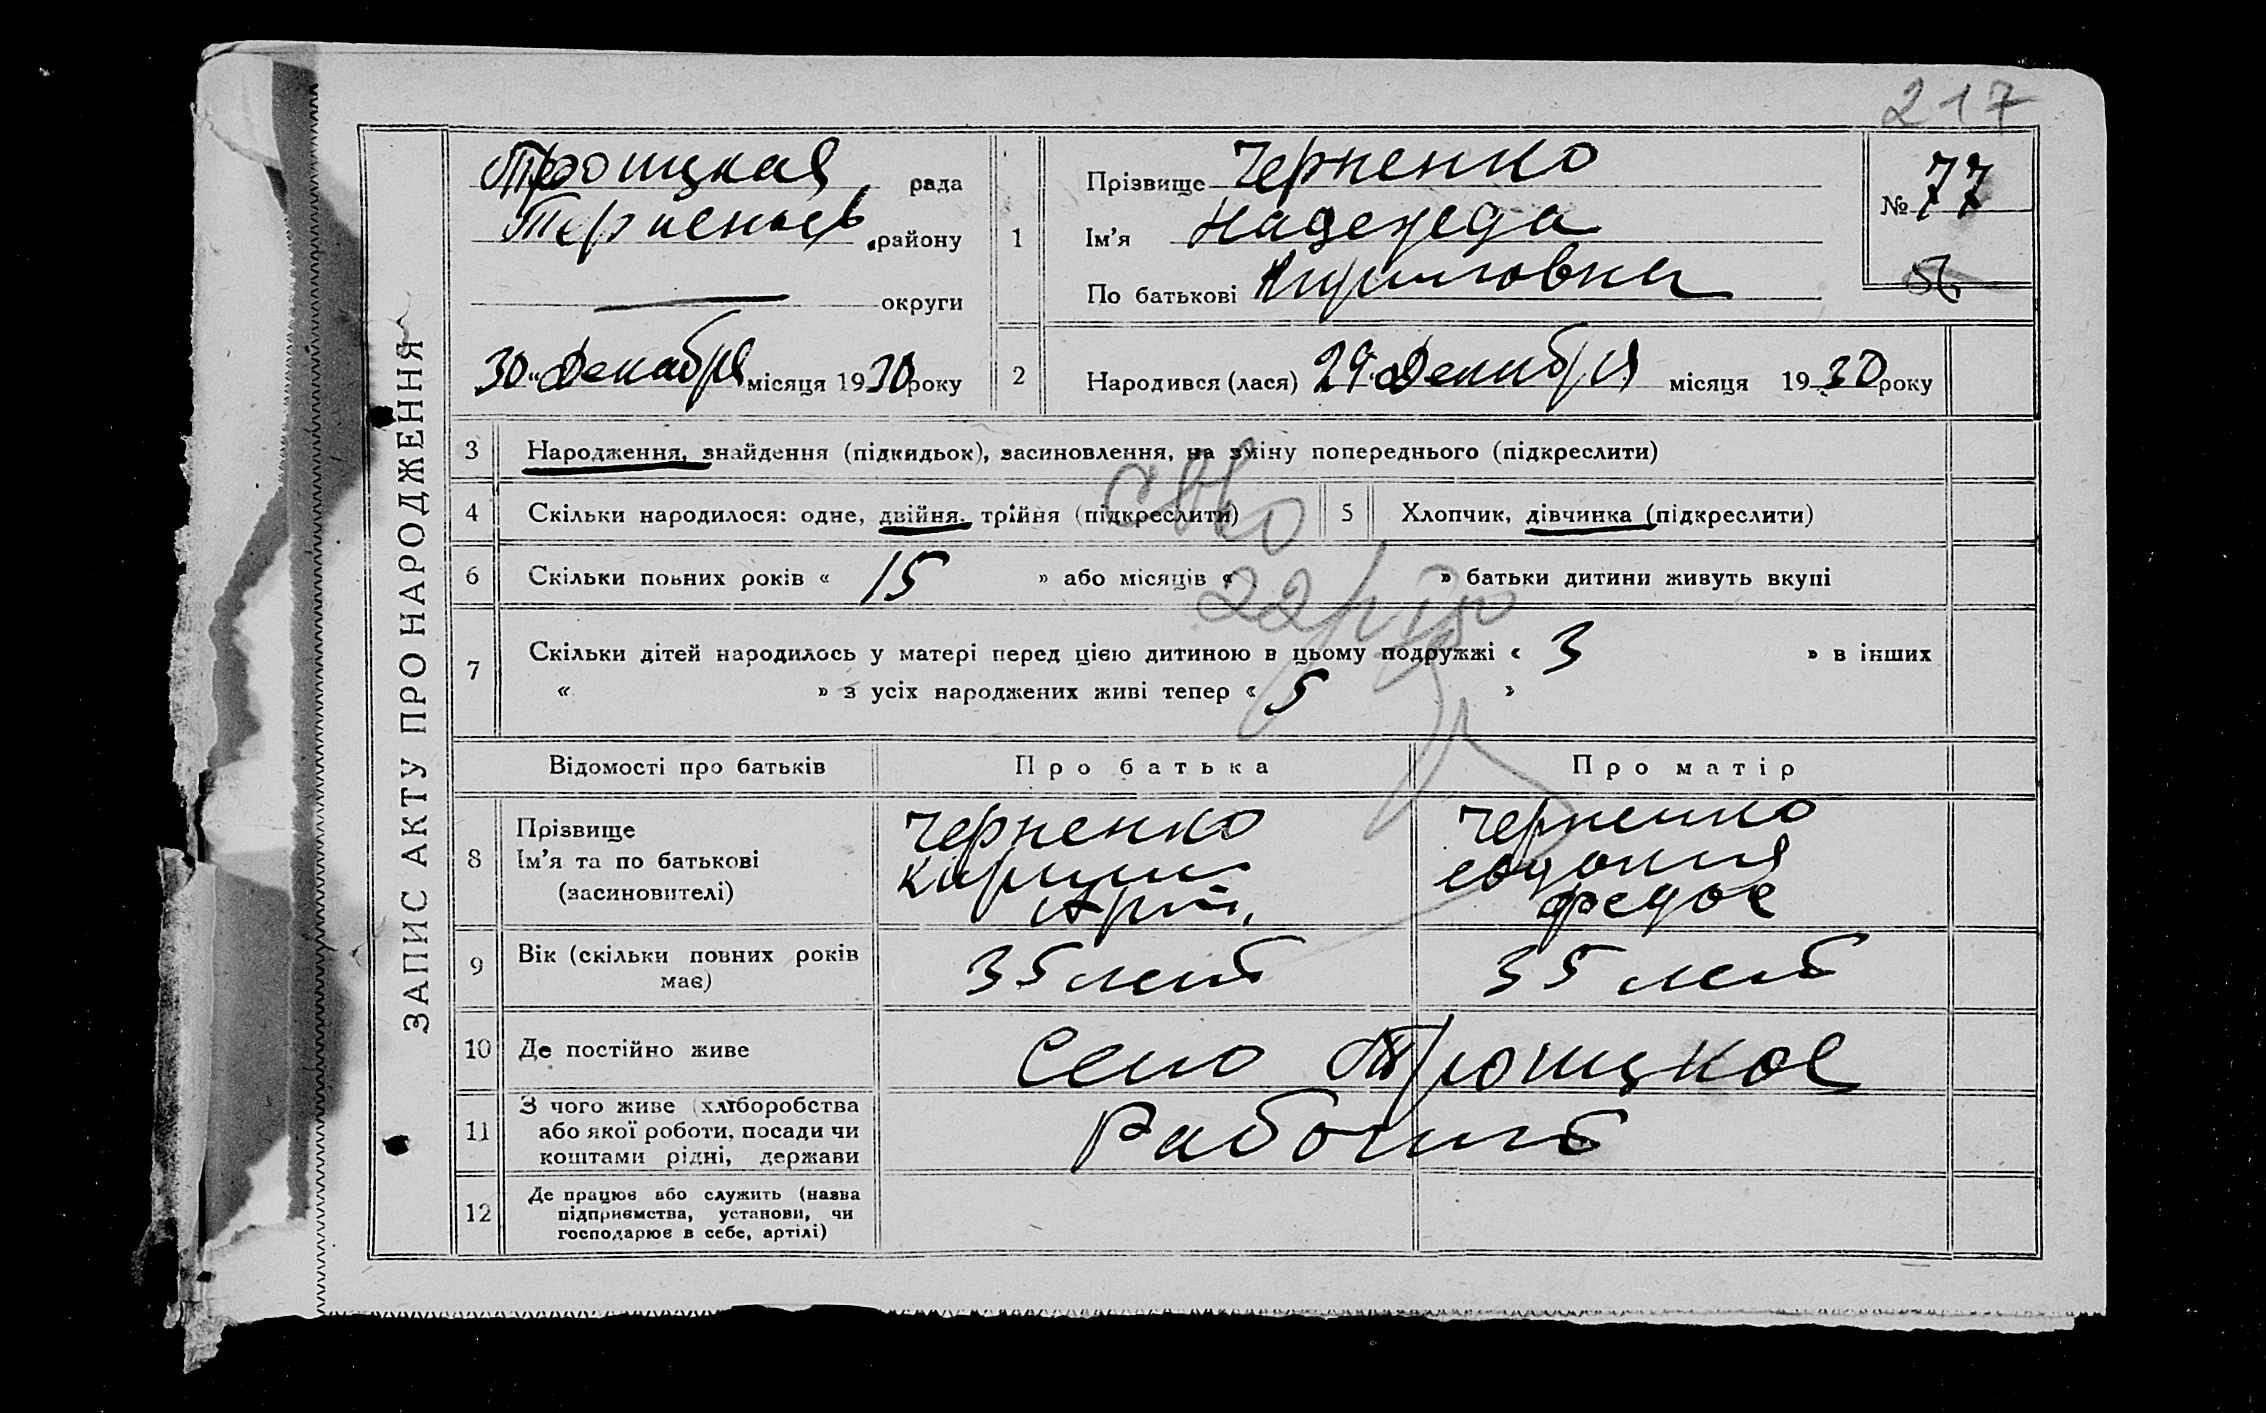 217
ЗАПИС АКТУ ПРО НАРОДЖЕННЯ
Троицкая рада
Терпеньев. району
округи
30 „ Декабря місяця 1930 року
1
Прізвище Черненко
Ім'я Надежда
По батькові Кириловна
№ 77
2
Народився (лася) 29 Декабря місяця 1930 року
3 Народження, знайдення (підкидьок), засиновлення, на зміну попереднього (підкреслити)
4 Скільки народилося: одне, двійня, трійня (підкреслити) 5 Хлопчик, дівчинка (підкреслити)
6 Скільки повних років « 15 » або місяців « » батьки дитини живуть вкупі
7 Скільки дітей народилось у матері перед цією дитиною в цьому подружжі « 3 » в інших
« » з усіх народжених живі тепер « 5 »
Відомості про батьків Про батька Про матір
8
Прізвище
Ім'я та по батькові
(засиновителі)
Черненко
Кирилл
Арт.
Черненко
Евдокия
Федос
9 Вік (скільки повних років
має)
35 лет 35 лет
10 Де постійно живе Село Троицкое
11
З чого живе (хліборобства
або якої роботи, посади чи
коштами рідні, держави
12
Де працює або служить (назва
підприємства, установи, чи
господарює в себе, артілі)